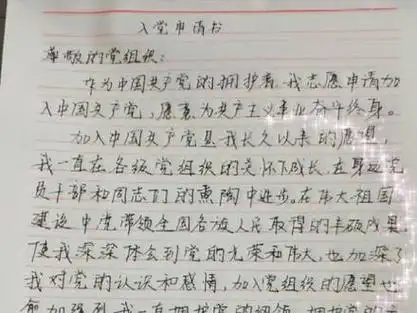 入党申请书
尊敬的党组织:
作为中国共产党的拥护者,我志愿申请加
入中国共产党,愿意为共产主义事业奋斗终身。
加入中国共产党是我长久以来的愿望,
我一直在各级党组织的关怀下成长,在身边党
员干部和同志们的熏陶中进步。在伟大祖国
建设中党带领全国各族人民取得的丰硕成果,
使我深深体会到党的光荣和伟大,也加深了
我对党的认识和感情,加入党组织的愿望也
愈加强烈,我一直拥护党的纲领,拥护党的